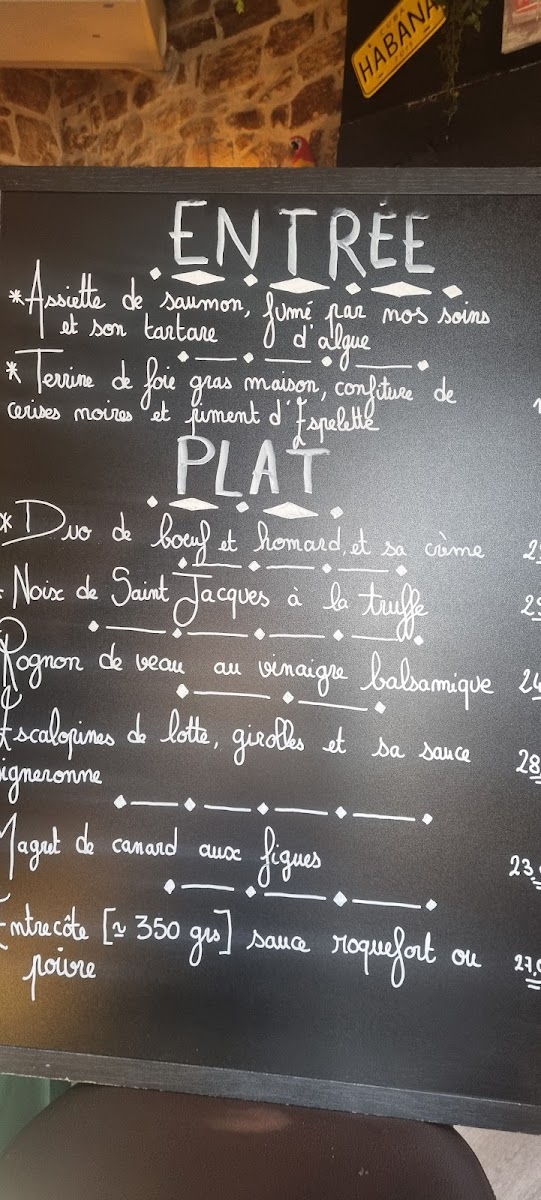 CUBA
HABANA
ENTRÉE
*Assiette de saumon, fumé par nos soins
et son tartare d'algue
*Terrine de foie gras maison, confiture de
cerises noires et piment d'Espelette
PLAT
*Duo de boeuf et homard, et sa crème
Noix de Saint Jacques à la truffe
Rognon de veau au vinaigre balsamique 24
Escalopines de lotte, girolles et sa sauce 28
igneronne
Magret de canard aux figues 23,
Entrecôte [≃ 350 grs] sauce roquefort ou 27,
poivre